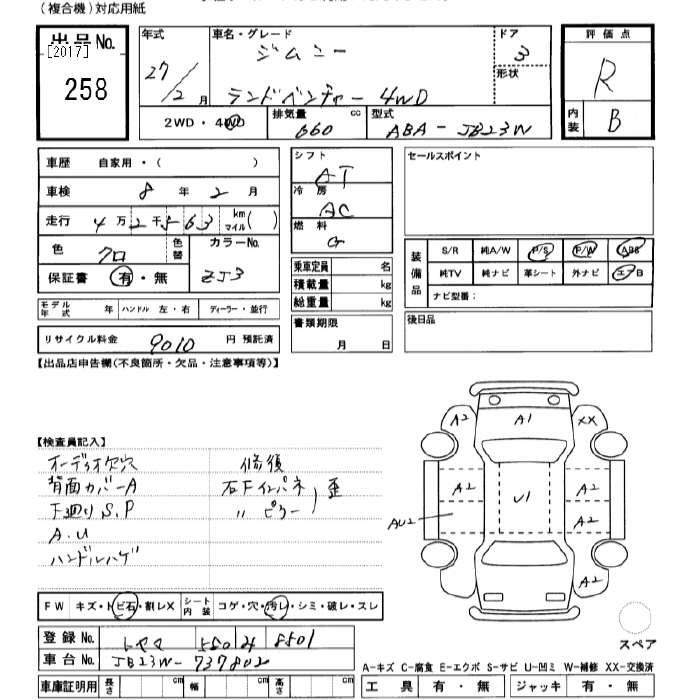 (複合機)対応用紙
出品No.
[2017]
258
年式
27/2 月
車名・グレード
ジムニー
ランドベンチャー 4WD
ドア
3
形状
評価点
R
内装
B
2WD・4WD
排気量
660 cc
型式
ABA-JB23W
車歴 自家用・( )
車検 8年 2月
走行 4万2千563 km マイル( )
色 クロ 色替 カラーNo. ZJ3
保証書 有・無
モデル年式 年 ハンドル 左・右 ディーラー・並行
リサイクル料金 9010 円 預託済
シフト
AT
冷房
AC
燃料
G
乗車定員 名
積載量 kg
総重量 kg
書類期限
月 日
セールスポイント
装備品
S/R 純A/W P/S P/W ABS
純TV 純ナビ 革シート 外ナビ エアB
ナビ型番:
後日品
【出品店申告欄(不良箇所・欠品・注意事項等)】
【検査員記入】
オーディオ欠穴
背面カバーA
下廻りS.P
A.U
ハンドルハゲ
修復
右Fインパネ
〃 ピラー
歪
A2 A1 XX
A2 A2
U1
AU2 A2
A2
スペア
FW キズ・トビ石・割レX シート内装 コゲ・穴・汚レ・シミ・破レ・スレ
登録No. トヤマ 580 イ 8501
車台No. JB23W-737802
車庫証明用 長さ cm 幅 cm 高さ cm
A-キズ C-腐食 E-エクボ S-サビ U-凹ミ W-補修 XX-交換済
工具 有・無 ジャッキ 有・無